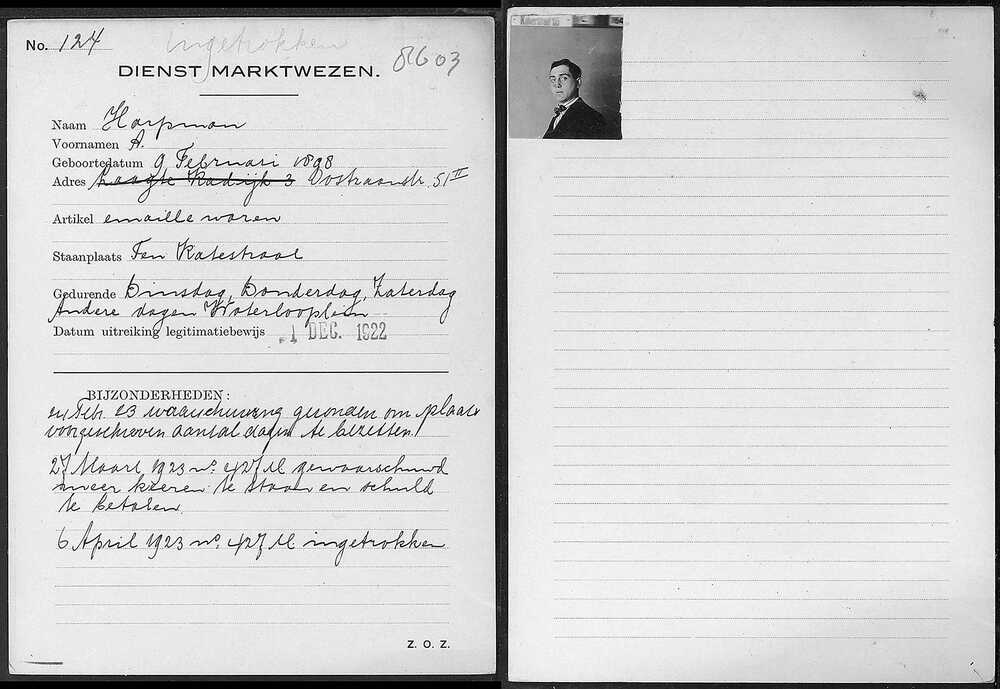 No. 124
Ingetrokken
8603
DIENST MARKTWEZEN.
Naam Harpman
Voornamen A.
Geboortedatum 9 Februari 1898
Adres Laagte Kadijk 3 Oostzaanstr. 51 II
Artikel emaille waren
Staanplaats Ten Katestraat
Gedurende Dinsdag, Donderdag, Zaterdag
Andere dagen Waterlooplein
Datum uitreiking legitimatiebewijs 1 DEC. 1922
BIJZONDERHEDEN:
Febr 23 waarschuwing gezonden om plaats
voorgeschreven aantal dagen te bezetten
27 Maart 1923 no. 427 M gewaarschuwd
meer keeren te staan en schuld
te betalen
6 April 1923 no. 427 M ingetrokken
Z. O. Z.